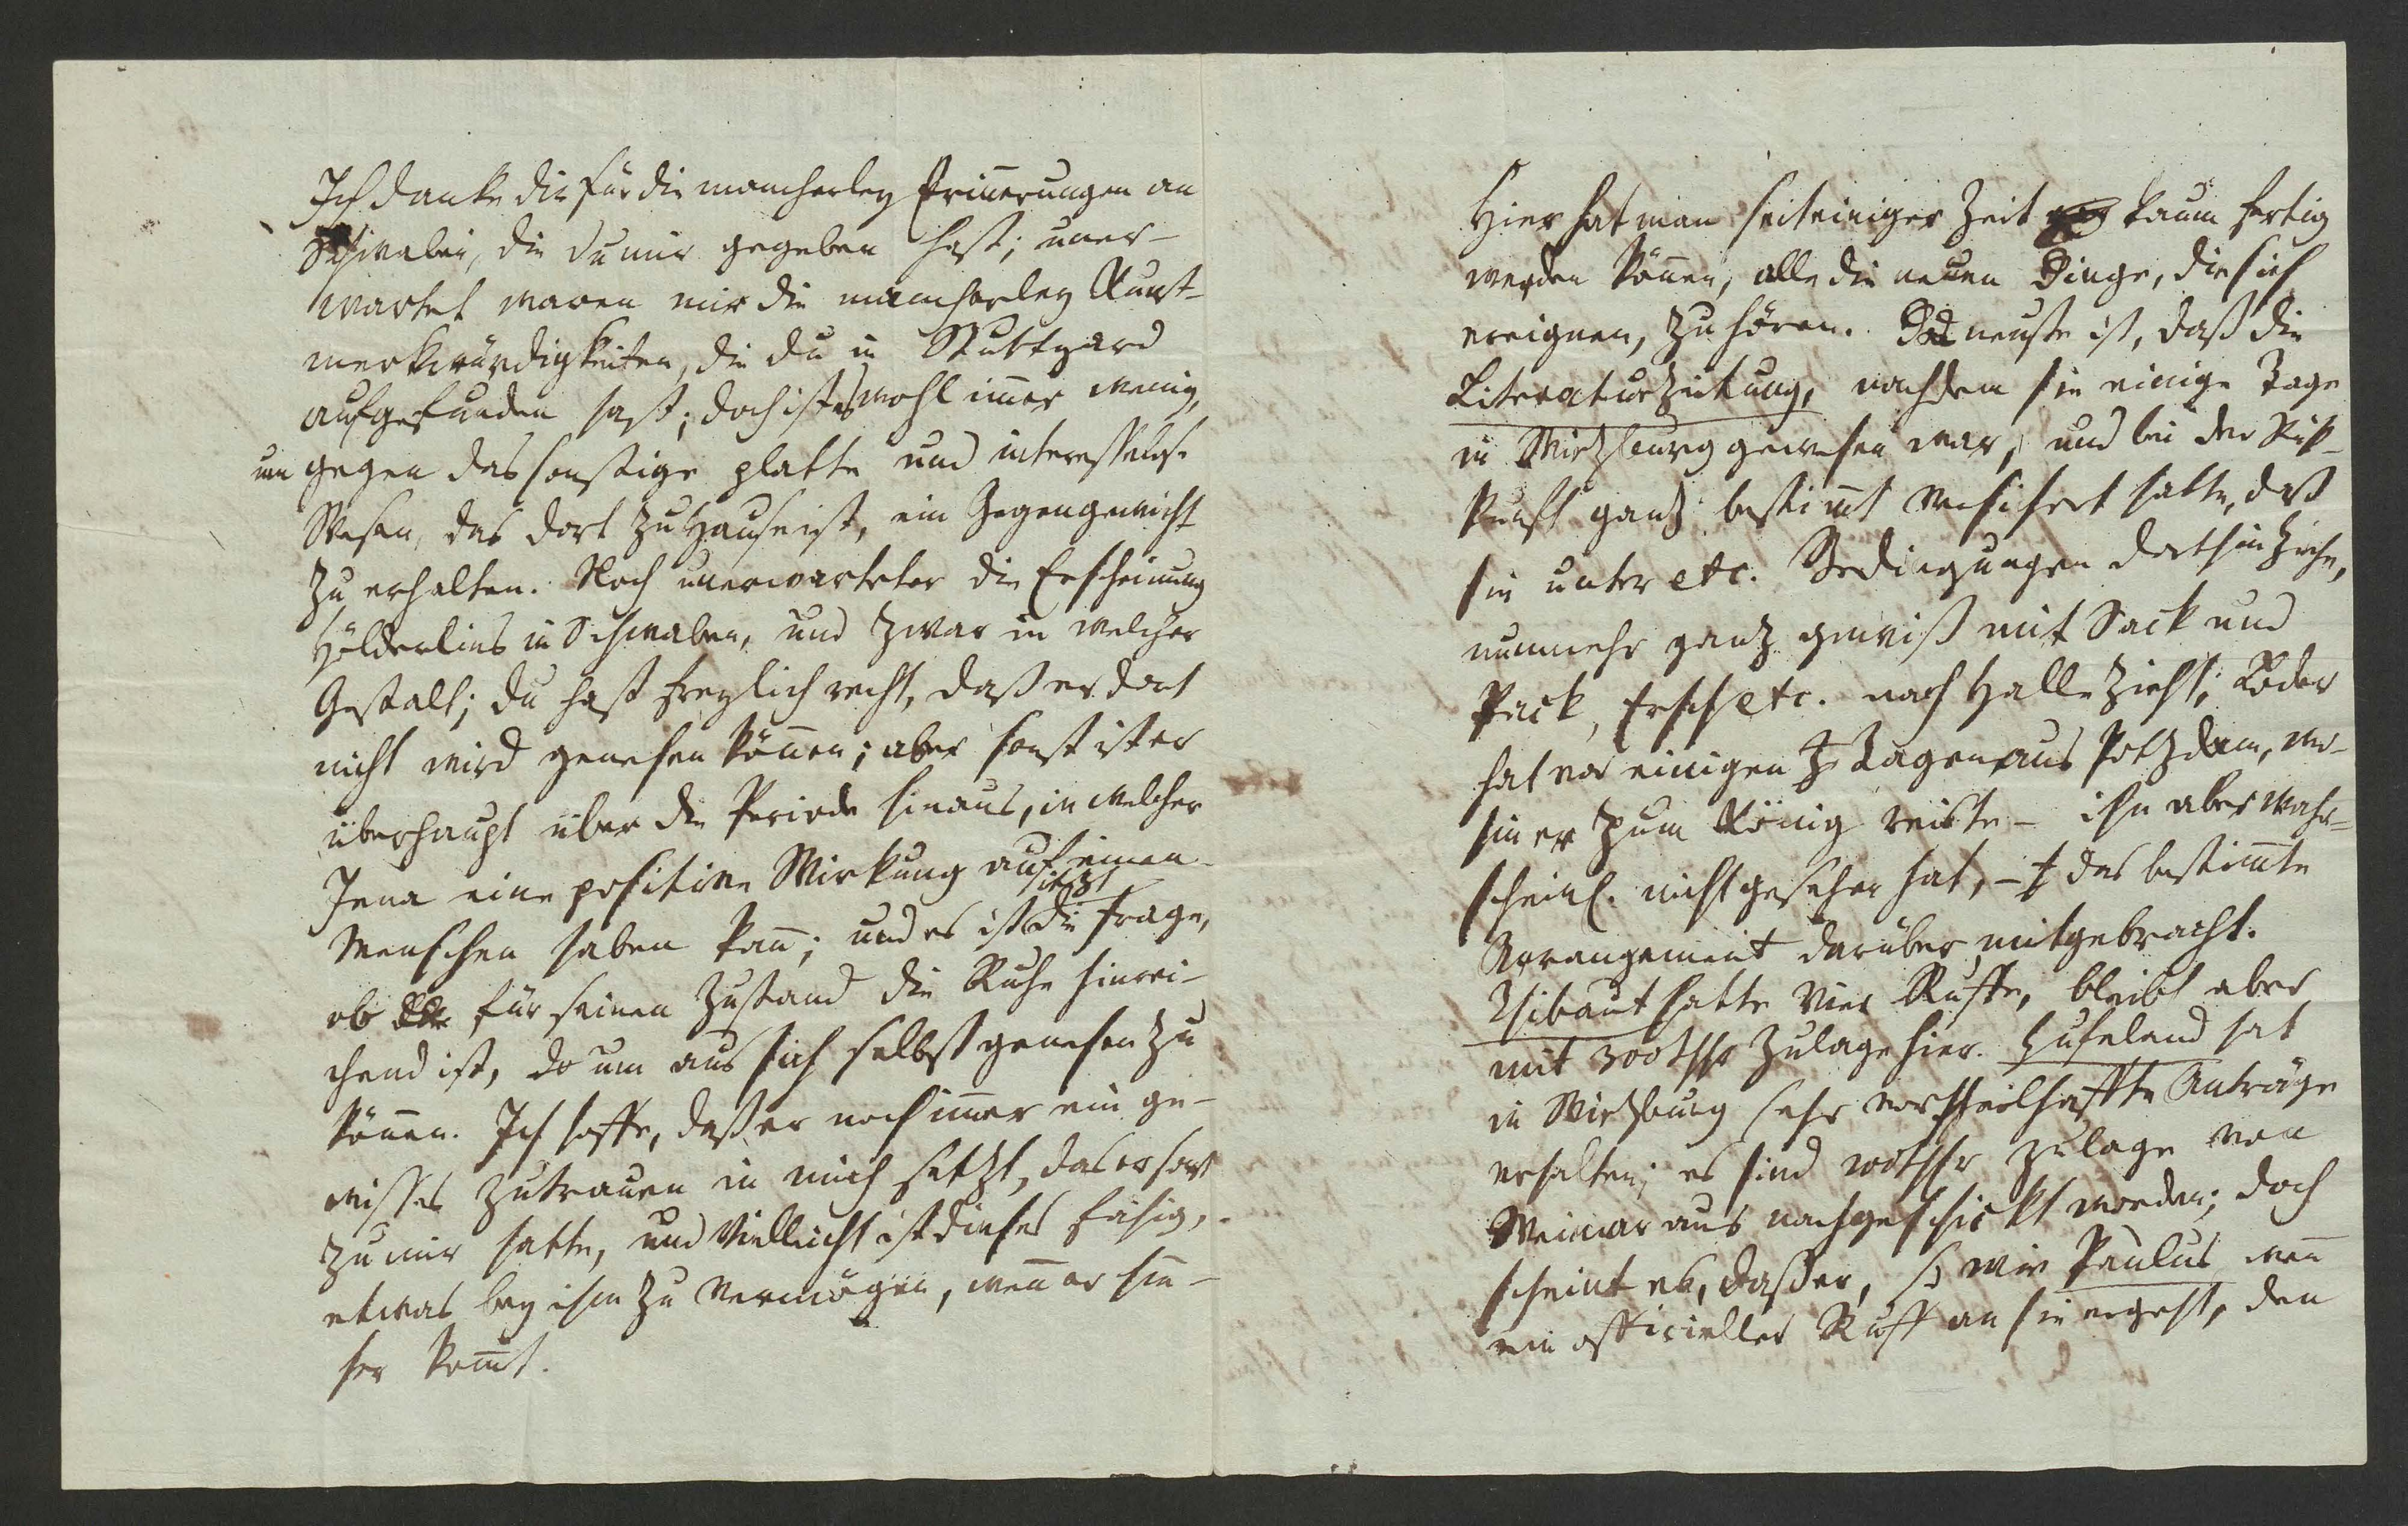 Ich danke dir für die mancherley Erinnerungen an
Schwaben, die du mir gegeben hast; uner-
wartet waren mir die mancherley Kunst-
merkwürdigkeiten, die du in Stuttgard
aufgefunden hast; doch ist es wohl immer wenig,
um gegen das sonstige platte und interesselose
Wesen, das dort zu Hause ist, ein Gegengewicht
zu erhalten. Noch unerwarteter die Erscheinung
Hölderlins in Schwaben, und zwar in welcher
Gestalt; du hast freylich recht, daß er dort
nicht wird genesen können; aber sonst ist er
überhaupt über die Periode hinaus, in welcher
Jena eine positive Wirkung auf einen
Menschen haben kann; und es ist itzt die Frage,
ob für seinen Zustand die Ruhe hinrei-
chend ist, um aus sich selbst genesen zu
können. Ich hoffe, daß er noch immer ein ge-
wisses Zutrauen in mich setzt, das er sonst
zu mir hatte, und vielleicht ist dieses fähig,
etwas bey ihm zu vermögen, wenn er hie-
her kommt.
Hier hat man seit einiger Zeit kaum fertig
werden können, alle die neuen Dinge, die sich
ereignen, zu hören. Das neuste ist, daß die
Literaturzeitung, nachdem sie einige Tage
in Wirzburg gewesen war, und bei der Rük-
kunft ganz bestimmt versichert hatte, daß
sie unter etc. Bedingungen dorthin ziehe,
nunmehr ganz gewiß mit Sack und
Pack, Ersch etc. nach Halle zieht; Loder
hat vor einigen Tagen aus Potzdam, wo-
hin er zum König reiste – ihn aber wahr-
scheinl. nicht gesehen hat, – das bestimmte
Arrangement darüber mitgebracht.
Thibaut hatte vier Ruffe, bleibt aber
mit 300 Thlr Zulage hier. Hufeland hat
in Wirzburg sehr vortheilhaffte Anträge
erhalten; es sind Thlr Zulage von
Weimar aus nachgeschickt worden; doch
scheint es, daß er, so wie Paulus wenn
ein officieller Ruff an sie ergeht, den